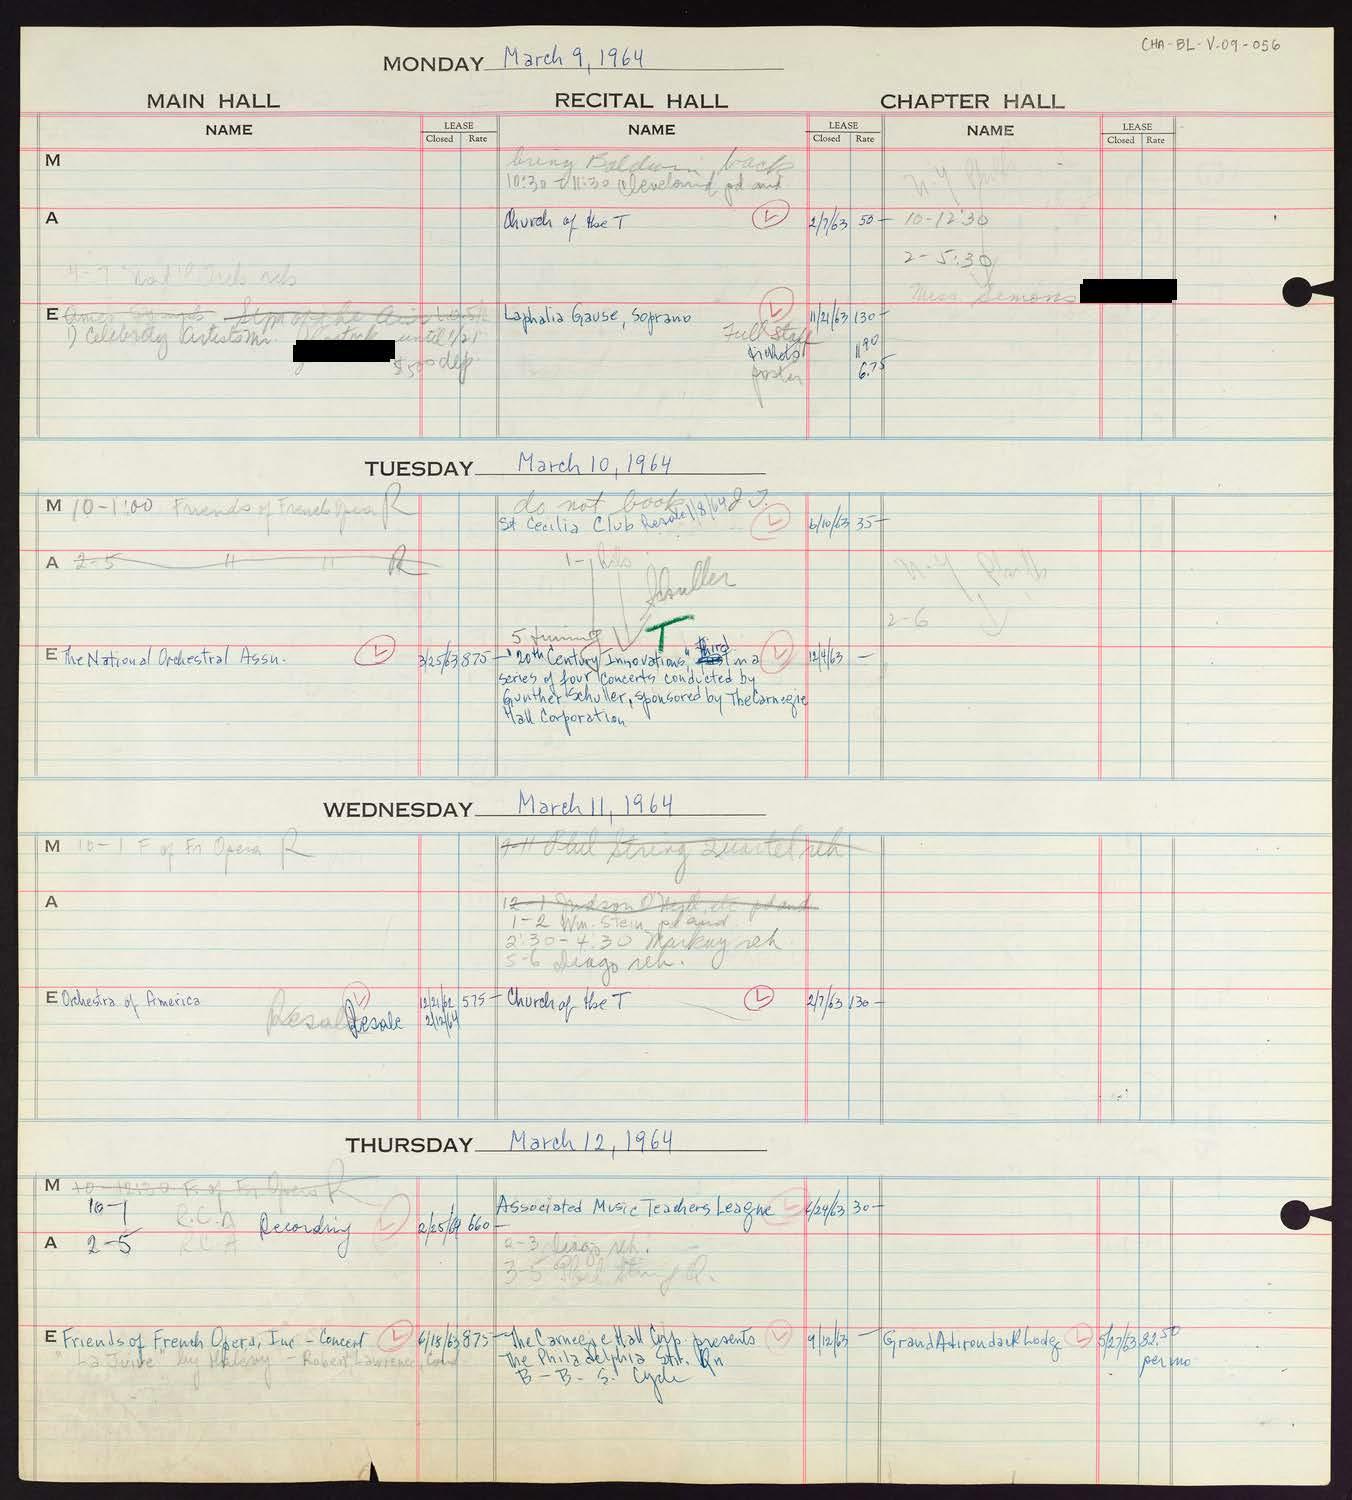 CHA-BL-V-09-056
MONDAY March 9, 1964
MAIN HALL RECITAL HALL CHAPTER HALL
NAME LEASE Closed Rate NAME LEASE Closed Rate NAME LEASE Closed Rate
M
bring Baldwin back
10:30 - 11:30 Cleveland pd aud
A
Church of the T L 2/7/63 50-
10-12:30
2-5:30
4-7
Miss Simons
E
Symp of the Air
1) Celebrity Artists Mr. until 1/21
$500 dep
Laphalia Gause, Soprano L 11/21/63 130-
Full Staff
tickets 1190
poster 6.75
TUESDAY March 10, 1964
M 10-1:00 Friends of French Opera R
do not book
St Cecilia Club Resale 1/8/64 L 6/10/63 35-
A 2-5 " " R
1-
Schuller
N.Y
2-6
T
E The National Orchestral Assn. L 3/25/63 875-
"20th Century Innovations," third in a L 12/4/63 -
series of four concerts conducted by
Gunther Schuller, sponsored by The Carnegie
Hall Corporation
WEDNESDAY March 11, 1964
M 10-1 F of Fr Opera R
9-11 Phil String Quartet reh
A
12-1 Judson
1-2 Wm. Stein pd aud
2:30-4:30 reh
5-6 Diago reh.
E Orchestra of America L 12/21/62 575-
Resale Resale 2/12/64
Church of the T L 2/7/63 130-
THURSDAY March 12, 1964
M 10-12:30 F. of Fr Opera R
10-1 R.C.A Recording L 2/25/64 660-
Associated Music Teachers League L 6/24/63 30-
A 2-5 R.C.A
2-3 Diago reh.
3-5 Phil String Q.
E Friends of French Opera, Inc - Concert L 6/18/63 875-
"La Juive" by Halevy - Robert Lawrence, Cond
The Carnegie Hall Corp. presents L 9/12/63 -
The Philadelphia Str. Qn
B-B-S. Cycle
Grand Adirondack Lodge L 5/27/63 82.50
per mo